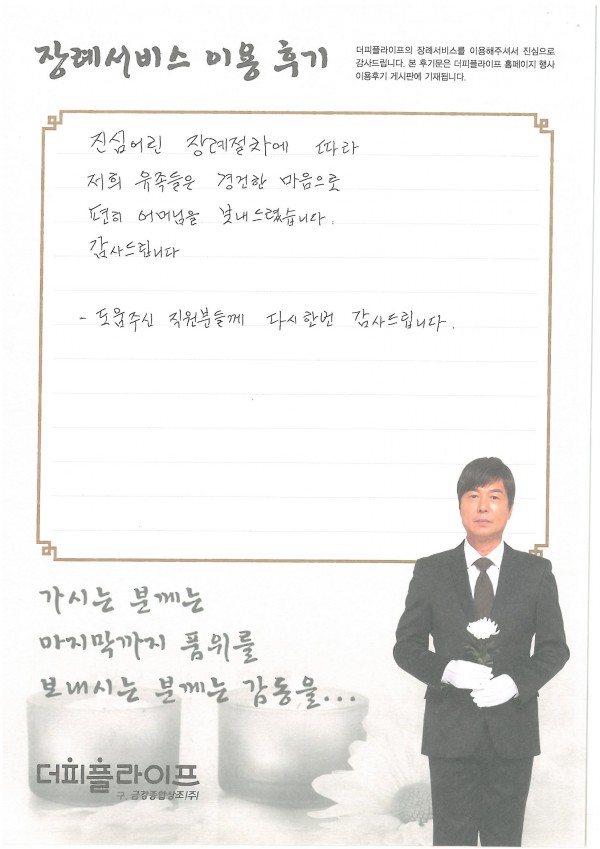 장례서비스 이용 후기
더피플라이프의 장례서비스를 이용해주셔서 진심으로
감사드립니다. 본 후기문은 더피플라이프 홈페이지 행사
이용후기 게시판에 기재됩니다.
진심어린 장례절차에 따라
저희 유족들은 경건한 마음으로
편히 어머님을 보내드렸습니다.
감사드립니다
- 도움주신 직원분들께 다시한번 감사드립니다.
가시는 분께는
마지막까지 품위를
보내시는 분께는 감동을...
더피플라이프
구. 금강종합상조(주)